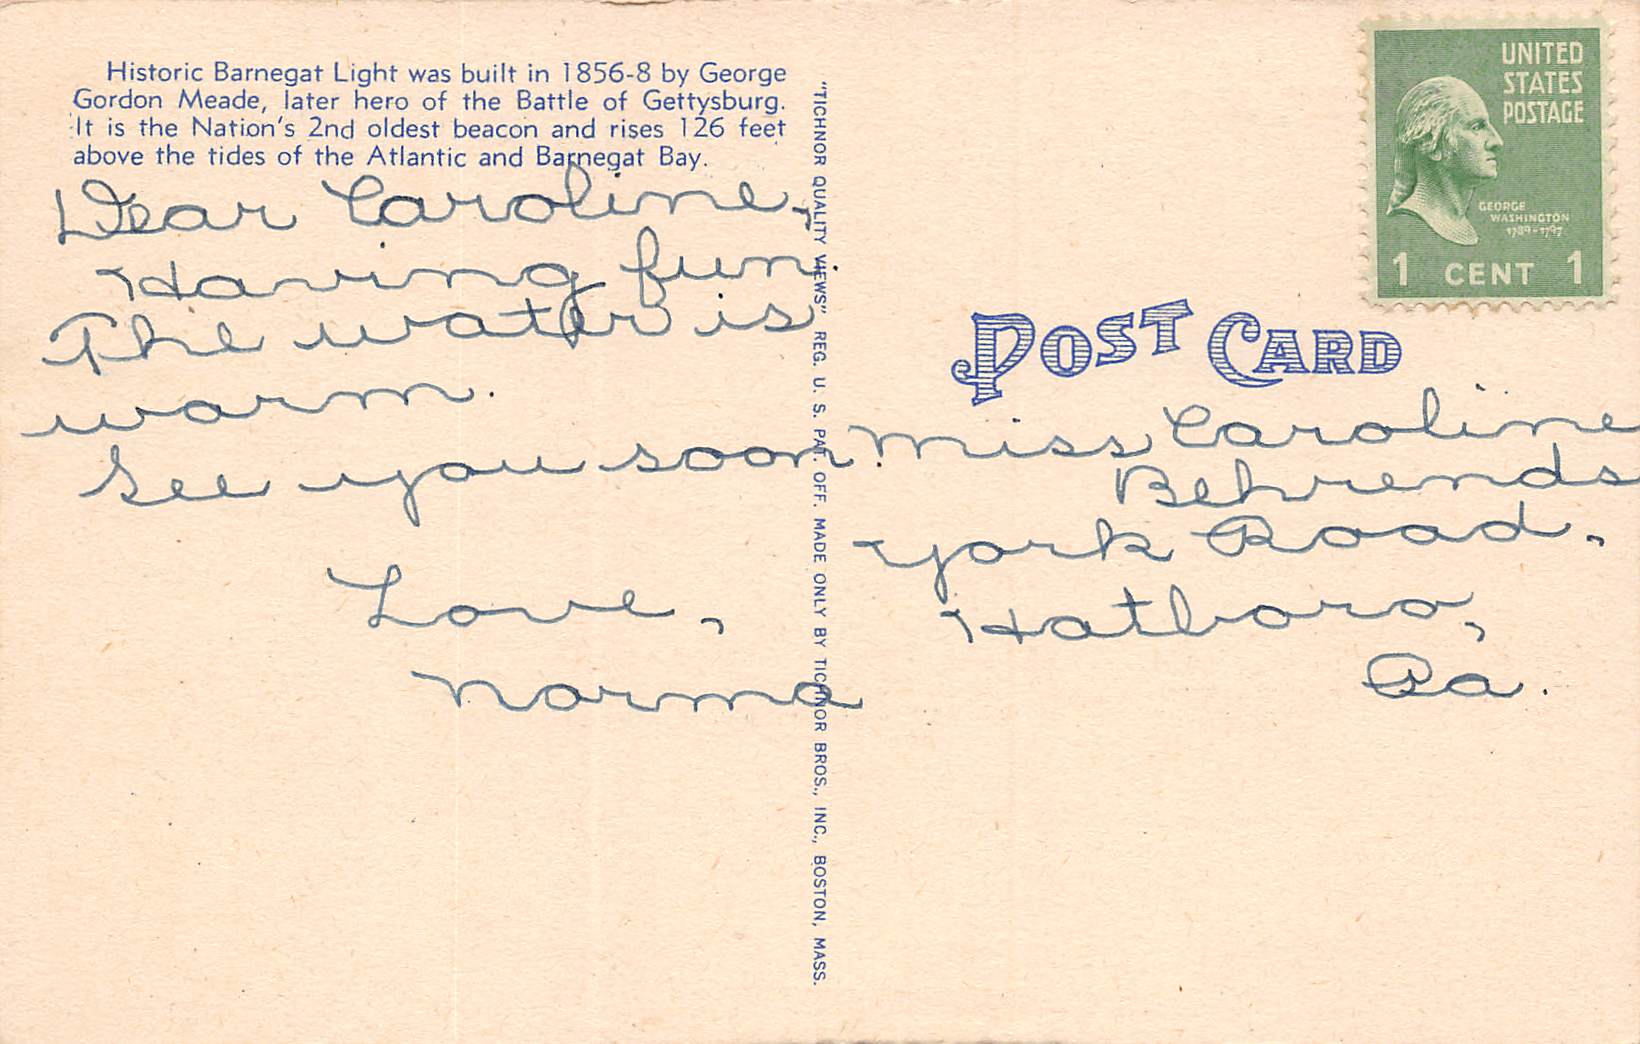 Historic Barnegat Light was built in 1856-8 by George
Gordon Meade, later hero of the Battle of Gettysburg.
It is the Nation's 2nd oldest beacon and rises 126 feet
above the tides of the Atlantic and Barnegat Bay.
Dear Caroline,
Having fun.
The water is
warm.
See you soon.
Love,
Norma
"TICHNOR QUALITY VIEWS" REG. U. S. PAT. OFF. MADE ONLY BY TICHNOR BROS., INC., BOSTON, MASS.
UNITED
STATES
POSTAGE
GEORGE
WASHINGTON
1789-1797
1 CENT 1
POST CARD
Miss Caroline
Behrends
York Road,
Hatboro,
Pa.